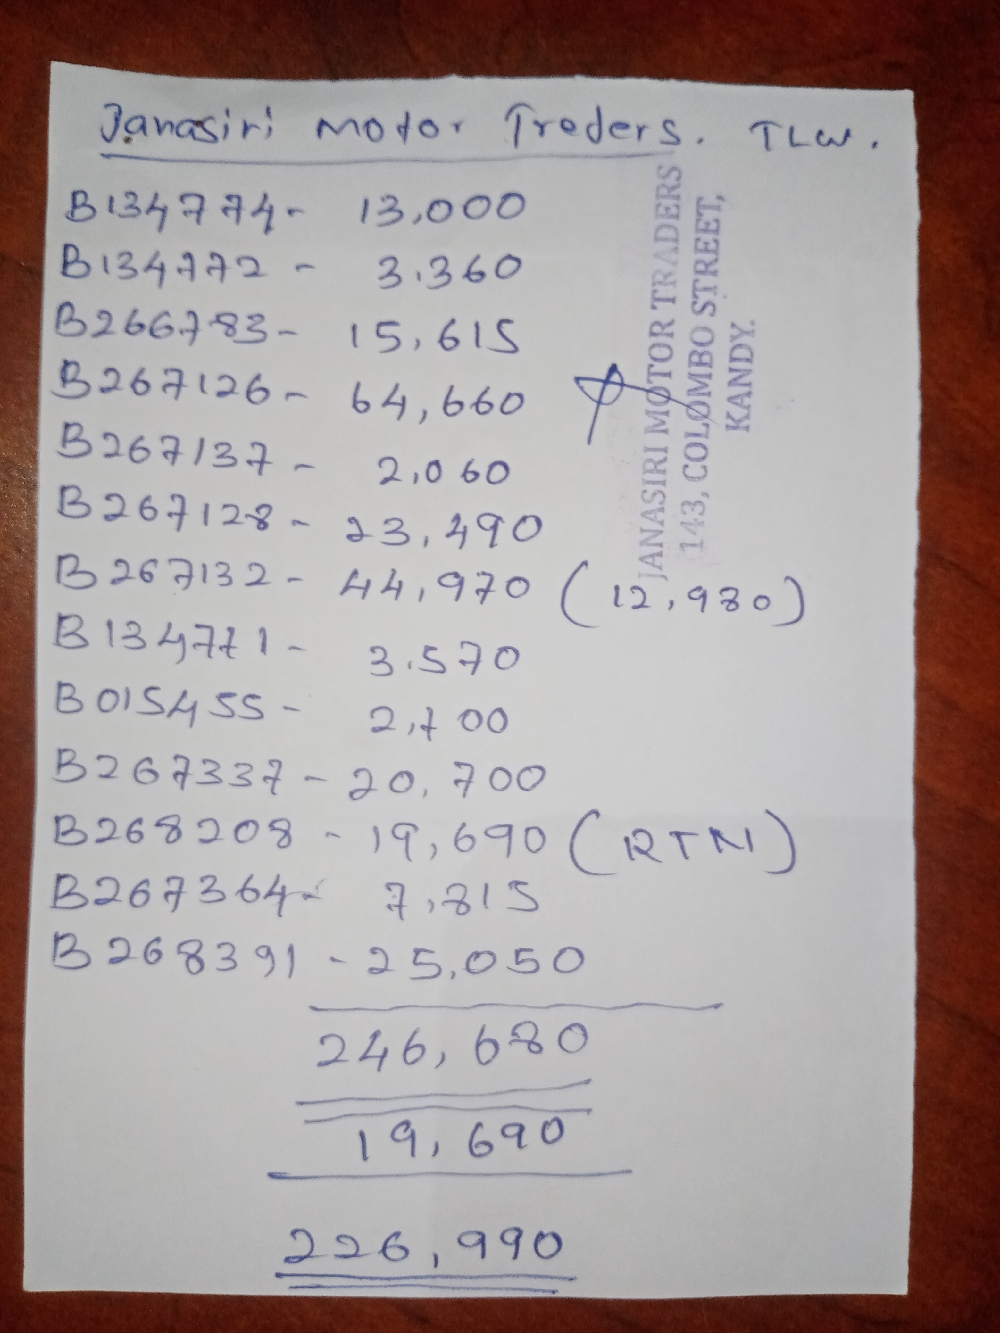 Janasiri Motor Treders. TLW.
B134774- 13,000
B134772 - 3.360
B266783- 15,615
B267126- 64,660
B267137- 2,060
B267128- 23,490
B267132- 44,970 (12,980)
B134771- 3.570
B015455- 2,700
B267337- 20,700
B268208 - 19,690 (RTN)
B267364- 7,815
B268391 - 25,050
246,680
19,690
226,990
JANASIRI MOTOR TRADERS
143, COLOMBO STREET,
KANDY.